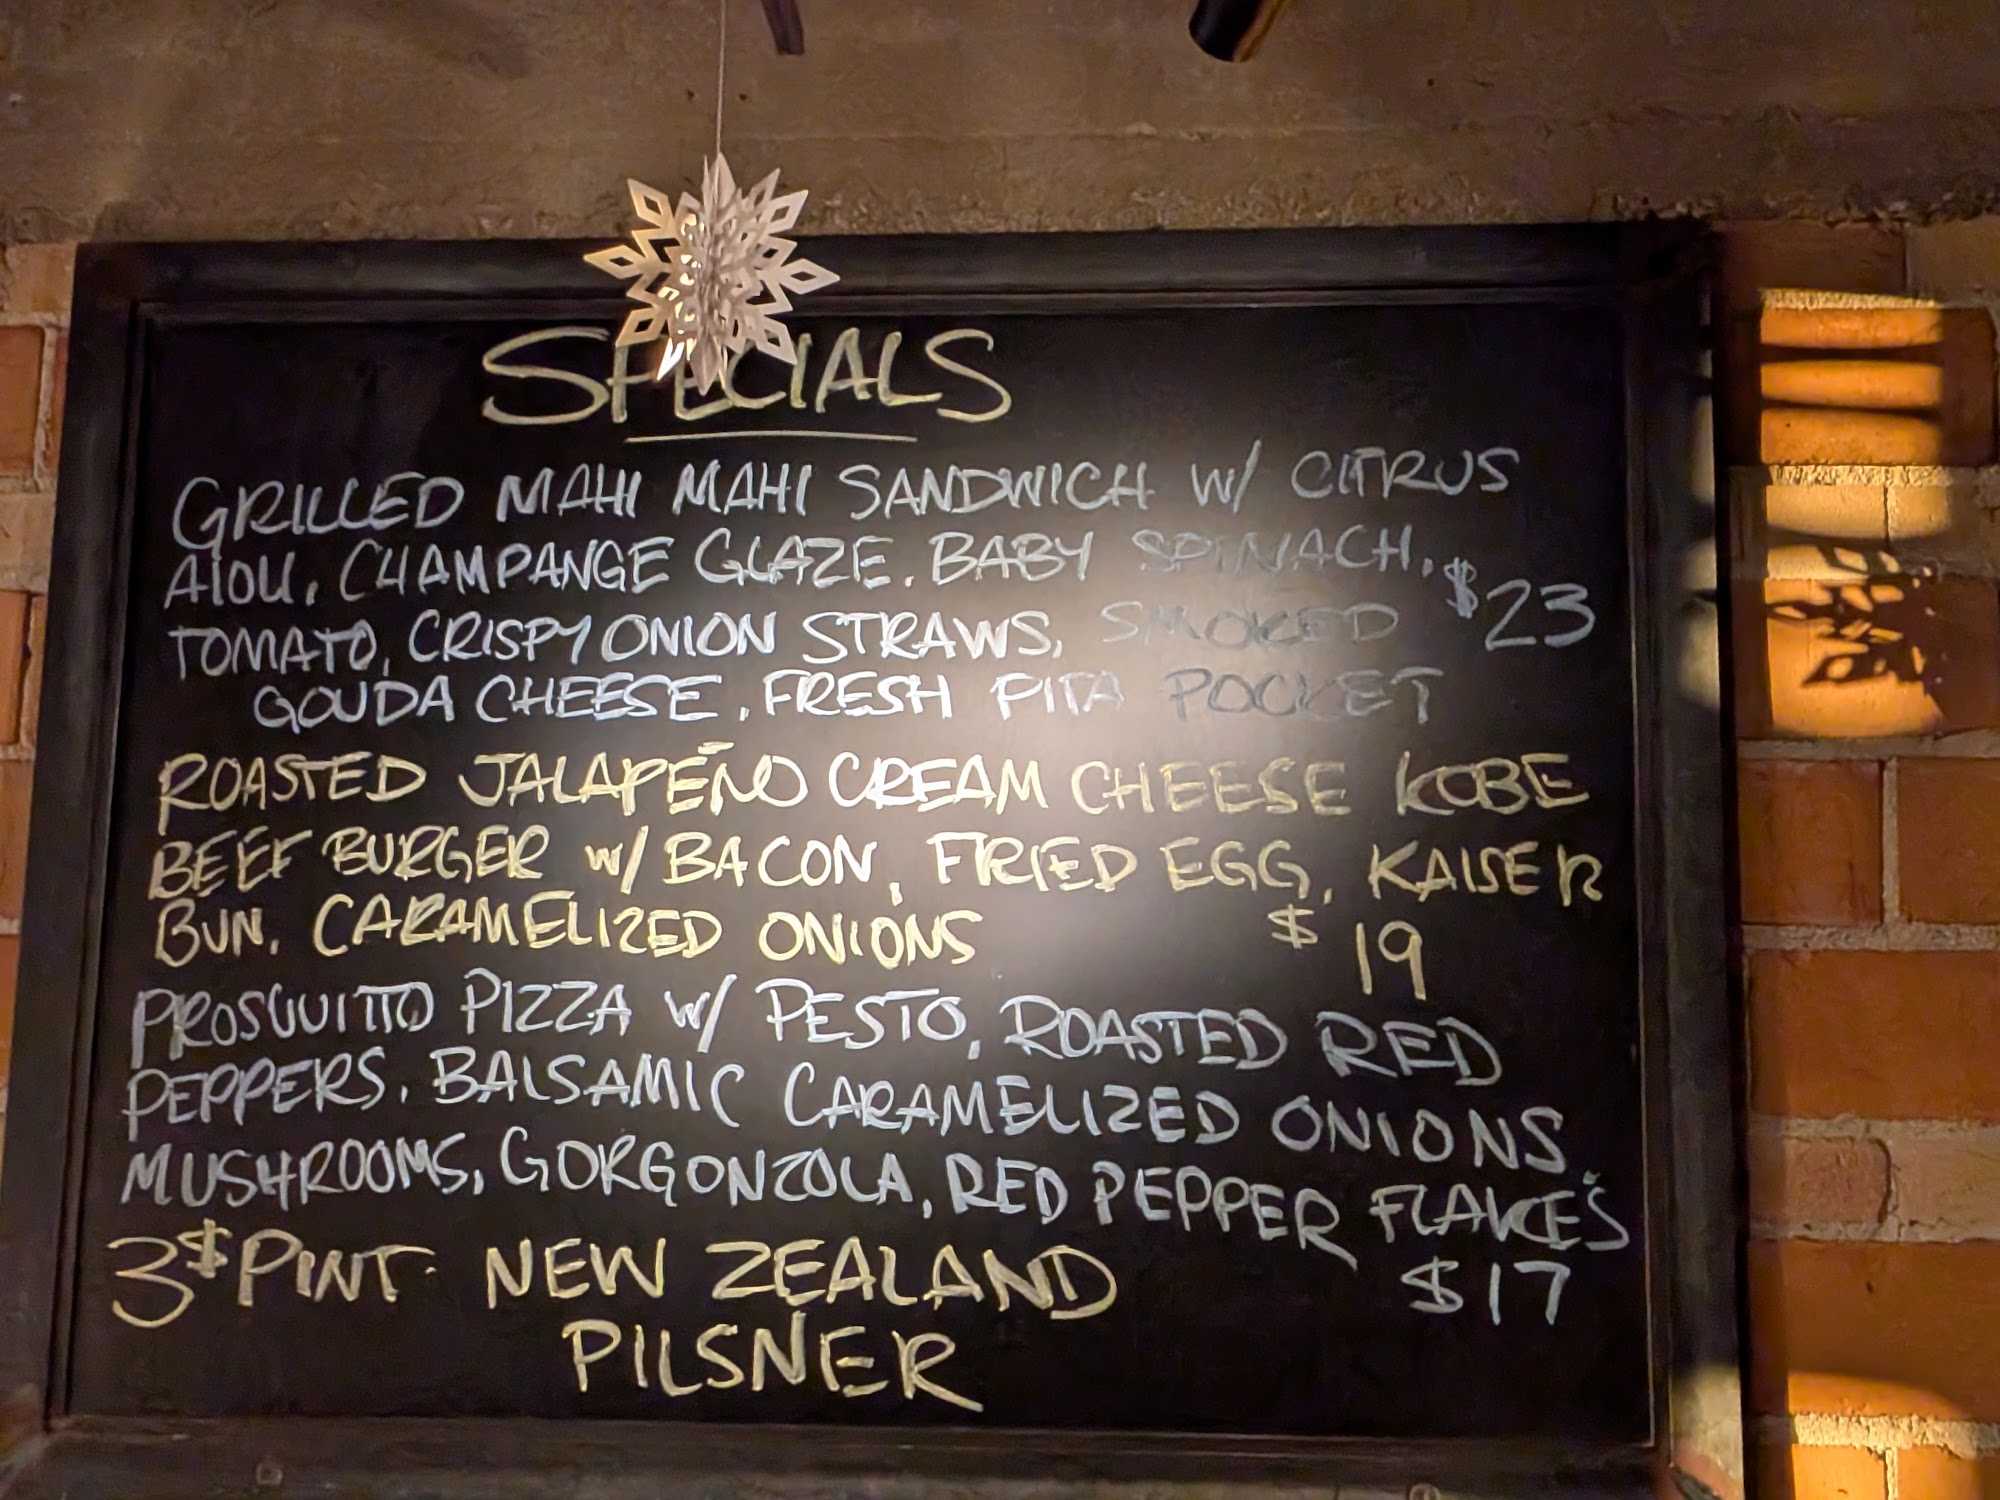 SPECIALS
GRILLED MAHI MAHI SANDWICH W/ CITRUS
AIOLI, CHAMPANGE GLAZE, BABY SPINACH,
TOMATO, CRISPY ONION STRAWS, SMOKED $23
GOUDA CHEESE, FRESH PITA POCKET
ROASTED JALAPEÑO CREAM CHEESE KOBE
BEEF BURGER W/ BACON, FRIED EGG, KAISER
BUN, CARAMELIZED ONIONS $19
PROSCUITTO PIZZA W/ PESTO, ROASTED RED
PEPPERS, BALSAMIC CARAMELIZED ONIONS,
MUSHROOMS, GORGONZOLA, RED PEPPER FLAKES
$17
3$ PINT. NEW ZEALAND
PILSNER